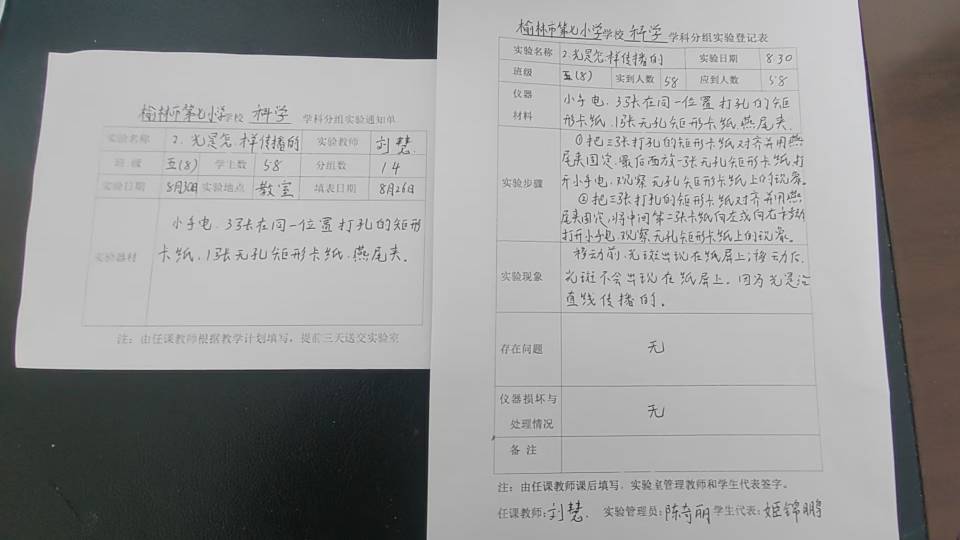 榆林市第七小学学校 科学 学科分组实验通知单
实验名称 2.光是怎样传播的 实验教师 刘慧
班级 五(8) 学生数 58 分组数 14
实验日期 8月30日 实验地点 教室 填表日期 8月26日
实验器材
小手电、3张在同一位置打孔的矩形
卡纸、1张无孔矩形卡纸、燕尾夹。
注：由任课教师根据教学计划填写，提前三天送交实验室
榆林市第七小学学校 科学 学科分组实验登记表
实验名称 2.光是怎样传播的 实验日期 8.30
班级 五(8) 实到人数 58 应到人数 58
仪器材料
小手电、3张在同一位置打孔的矩
形卡纸、1张无孔矩形卡纸、燕尾夹.
实验步骤
①把三张打孔的矩形卡纸对齐并用燕
尾夹固定、最后面放一张无孔矩形卡纸,打
开小手电、观察无孔矩形卡纸上的现象。
②把三张打孔的矩形卡纸对齐并用燕
尾夹固定,将中间第二张卡纸向左或向右移动
打开小手电,观察无孔矩形卡纸上的现象。
实验现象
移动前,光斑出现在纸屏上;移动后,
光斑不会出现在纸屏上。因为光是沿
直线传播的。
存在问题 无
仪器损坏与处理情况 无
备注
注：由任课教师课后填写，实验室管理教师和学生代表签字。
任课教师:刘慧. 实验管理员:陈奇丽 学生代表:姬锦鹏